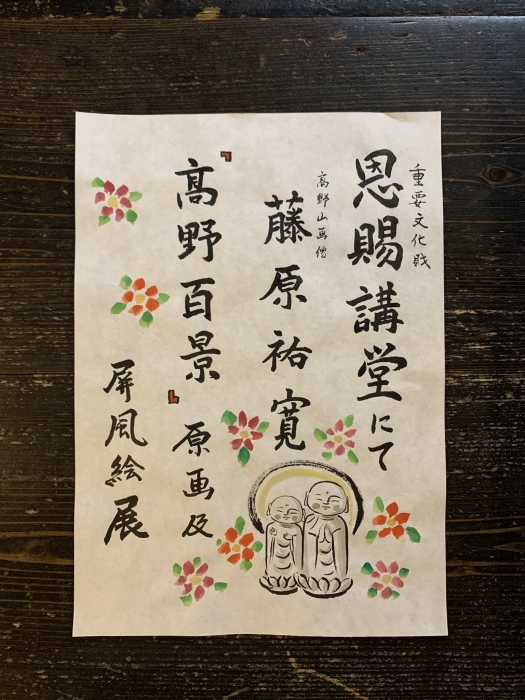 重要文化財
恩賜講堂にて
高野山画僧
藤原祐寛
「髙野百景」原画及
屏風絵展